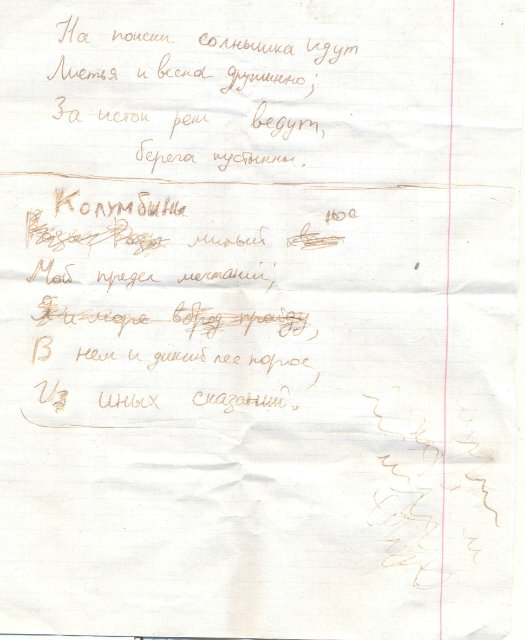 На поиски солнышка идут
Листья и весна дружинно;
За исток реки ведут,
берега пустынны.
Колумбины
милый нос
Мой предел мечтаний;
Я и море вброд пройду,
В нем и дикий лес порос,
Из иных сказаний.